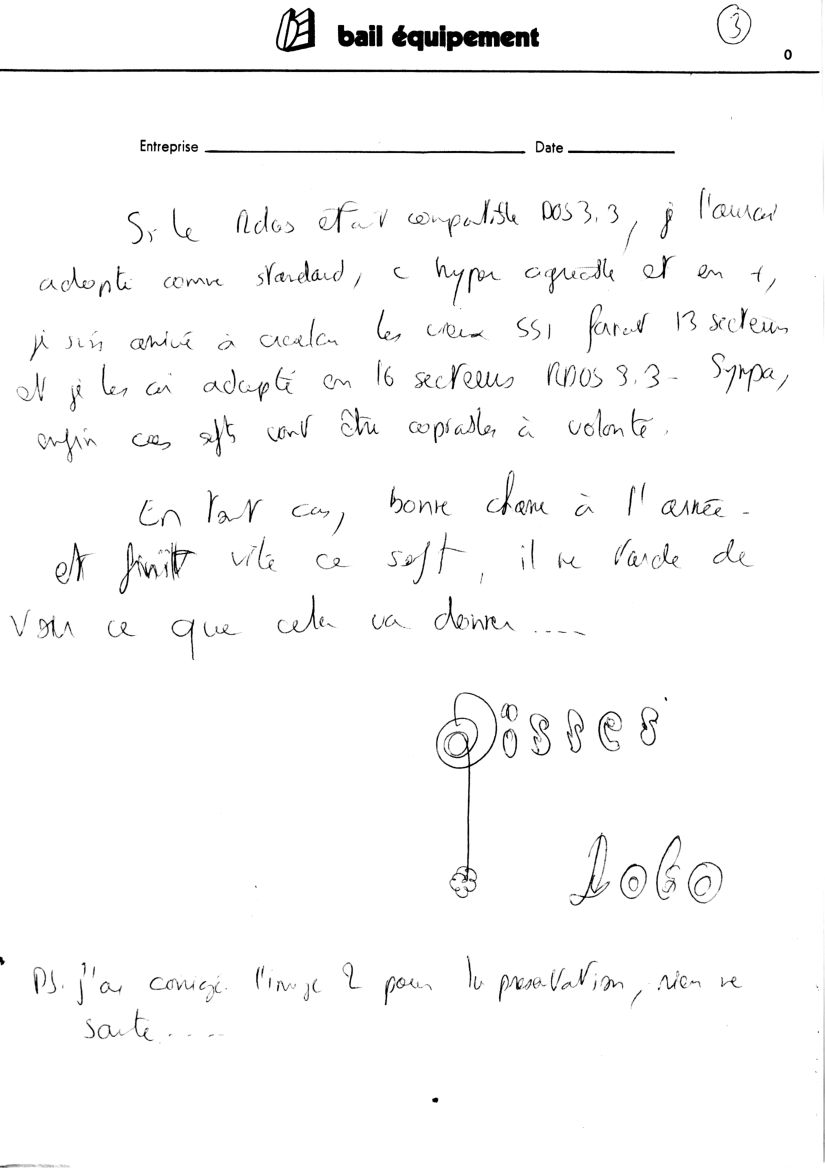 bail équipement
3
0
Entreprise Date
Si le Rdos était compatible DOS 3.3, j l'aurai
adopté comme standard, c hyper agréable et en +,
je suis arrivé à cracker les vieux SSI format 13 secteurs
et je les ai adapté en 16 secteurs RDOS 3.3 - Sympa,
enfin ces softs vont être copiables à volonté.
En tout cas, bonne chance à l'armée -
et finit vite ce soft, il me tarde de
voir ce que cela va donner ....
Pisses
LoGo
PS. j'ai corrigé l'image 2 pour la présentation, rien ne
saute .....